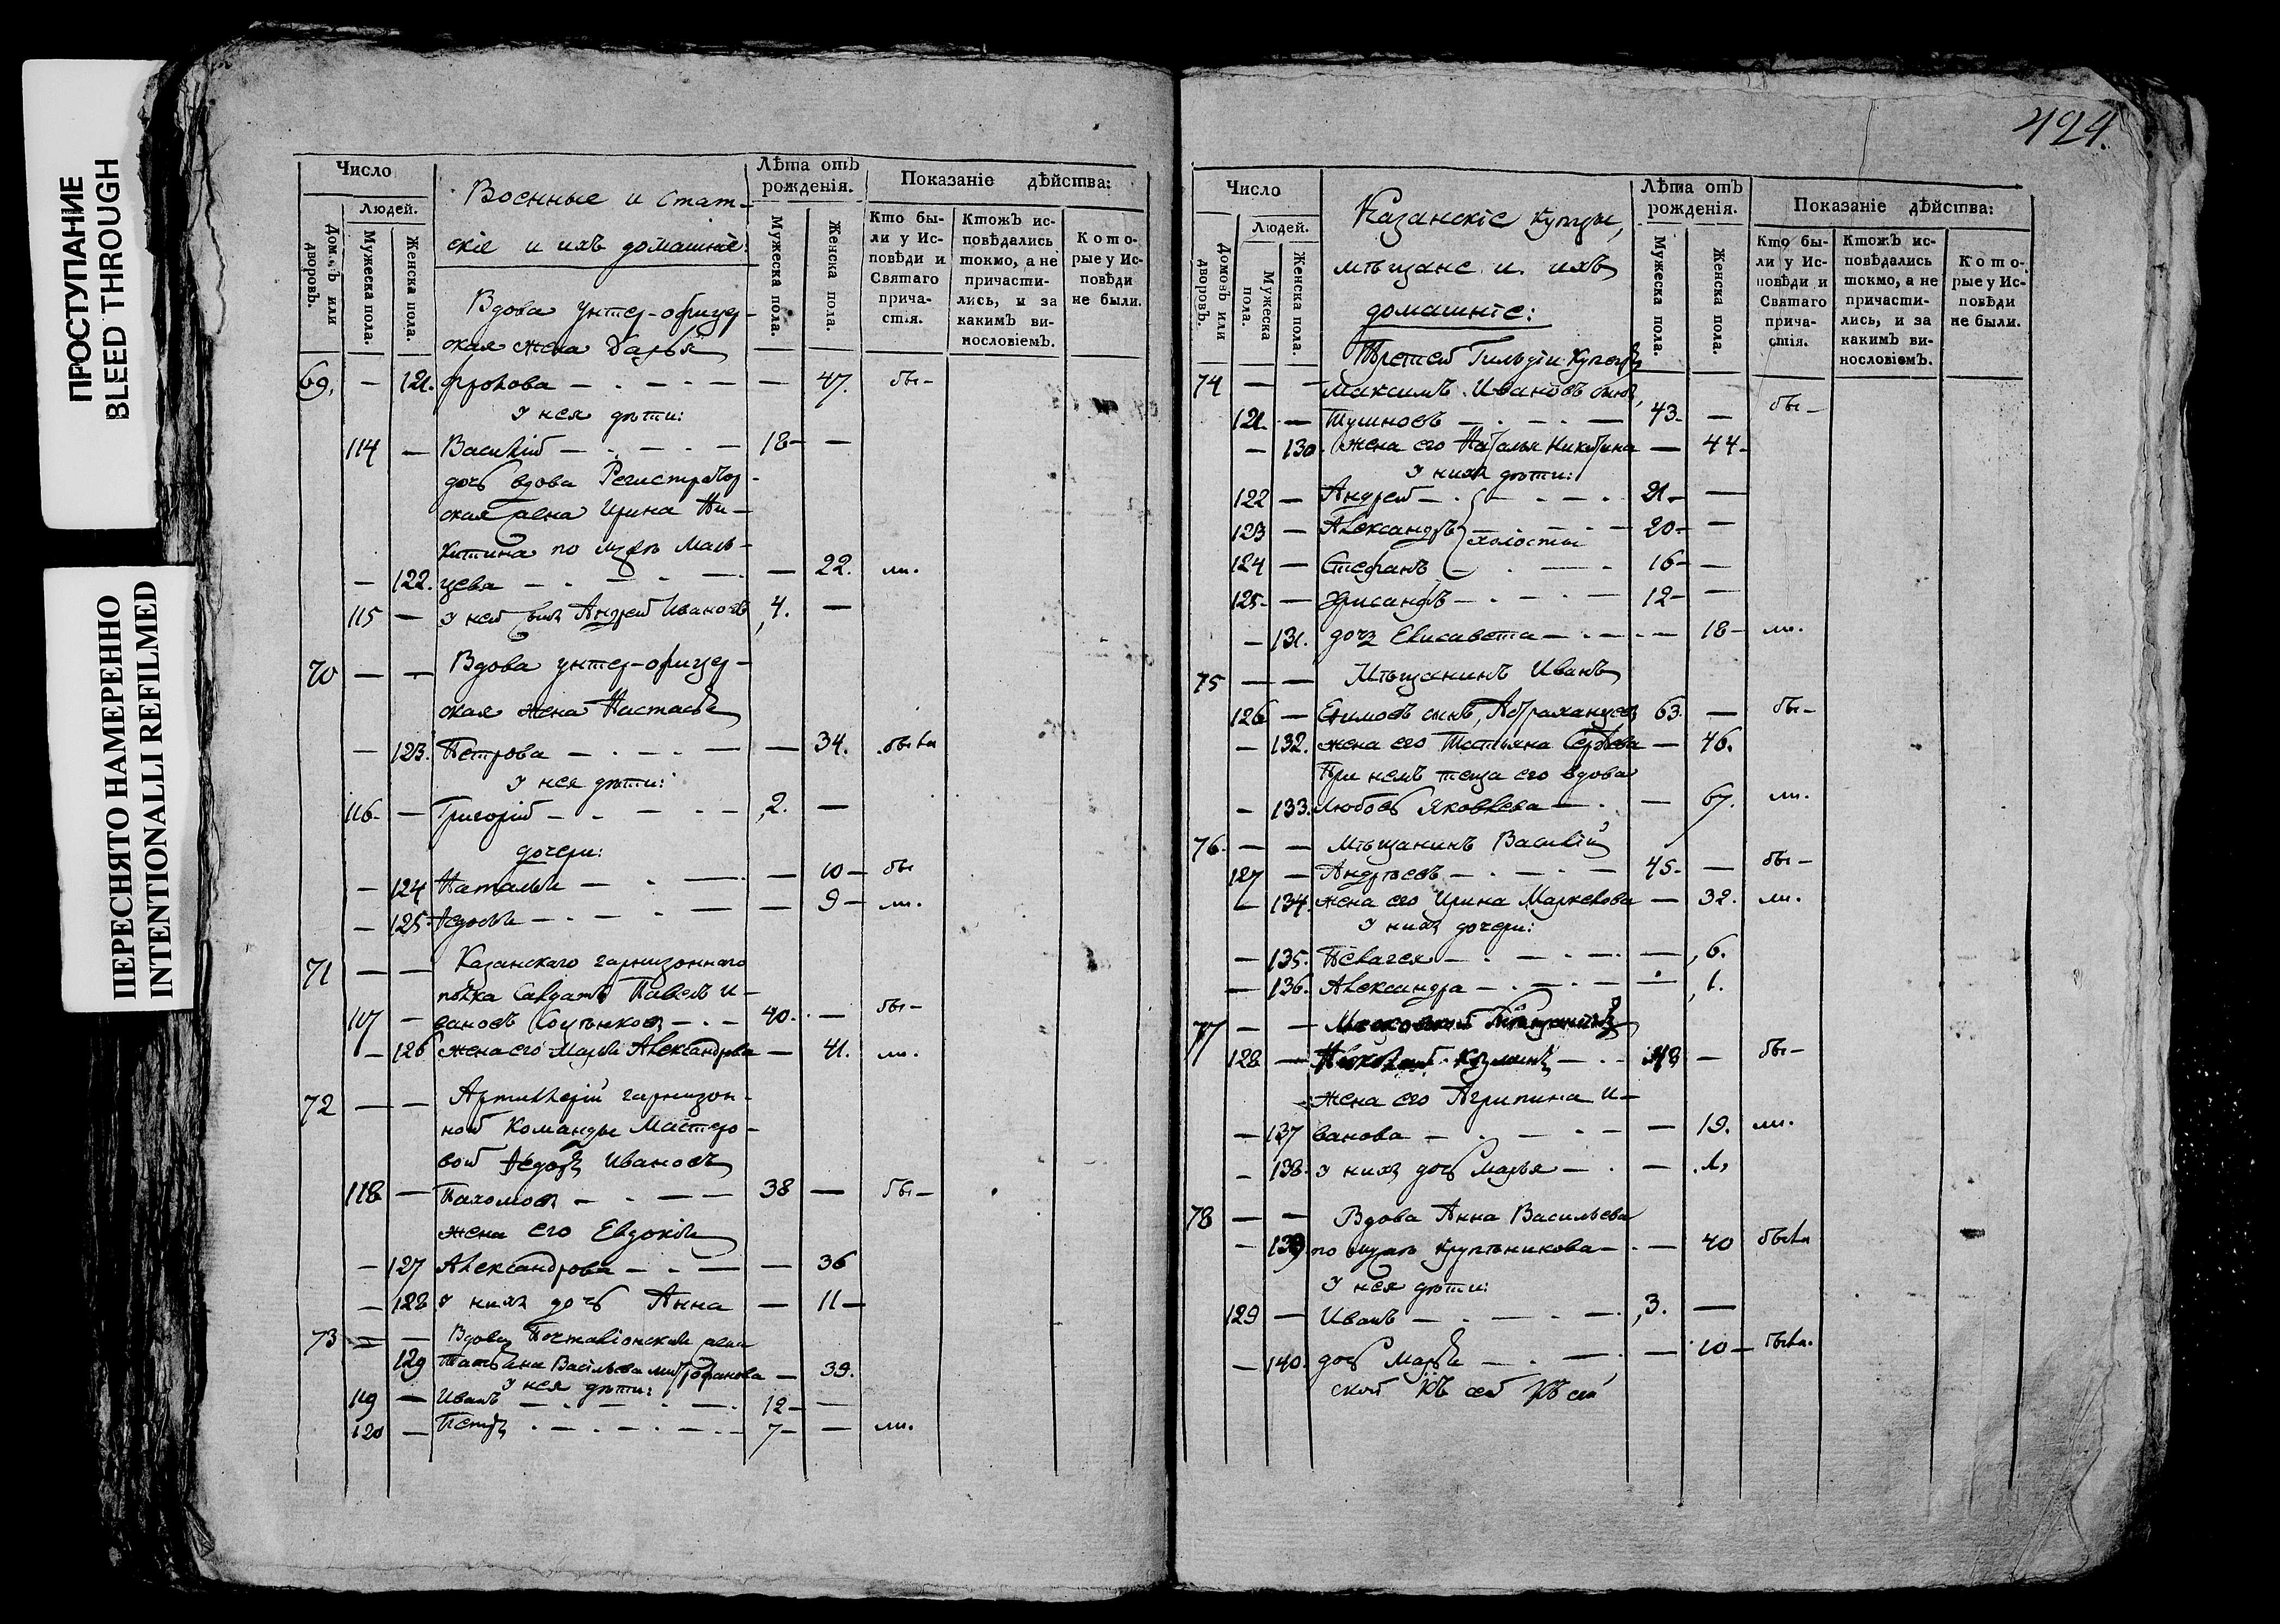 ПРОСТУПАНИЕ
BLEED THROUGH
ПЕРЕСНЯТО НАМЕРЕННО
INTENTIONALLI REFILMED
Число
Людей.
Домовъ или дворовъ.
Мужеска пола.
Женска пола.
Военные и стат-
скіе и ихъ домашніе:
Лѣта отъ рожденія.
Мужеска пола.
Женска пола.
Показаніе дѣйства:
Кто бы-
ли у Ис-
повѣди и
Святаго
прича-
стія.
Ктожъ ис-
повѣдались
токмо, а не
причасти-
лись, и за
какимъ ви-
нословіемъ.
Кото-
рые у Ис-
повѣди
не были.
Вдова унтер-офицер-
ская жена Дарья
69. — 121. Фролова — — 47. бы-
у нея дѣти:
114 — Василій — 18 —
дочь вдова Регистратор-
ская жена Ирина Ни-
китина по мужѣ Маль-
— 122. цева — — 22. ли.
115 — у ней сынъ Андрей Ивановъ 4. —
70 — — Вдова унтер-офицер-
ская жена Настасья
— 123. Петрова — — 34. была
у нея дѣти:
116 — Григорій — 2. —
дочери:
— 124 Наталья — — 10 — бы
— 125 Федосья — — 9 — ли.
71 — — Казанскаго гарнизоннаго
полка Салдатъ Павелъ И-
117 — вановъ — 40. — бы-
— 126 жена его Марья Александрова — 41. ли.
72 — — Артиллерій гарнизон-
ной Команды Мастеро-
вой Федоръ Ивановъ
118 — Пахомовъ — 38 — бы-
жена его Евдокія
— 127 Александрова — — 36
— 128 у нихъ дочь Анна — 11 —
73 — — Вдова Почталіонская жена
129 Татьяна Васильева Митрофанова — 39.
у нея дѣти:
119 — Иванъ — 12 —
120 — Петръ — 7 — — ли.
424.
Число
Людей.
Домовъ или дворовъ.
Мужеска пола.
Женска пола.
Казанскіе купцы,
мѣщане и ихъ
домашніе:
Лѣта отъ рожденія.
Мужеска пола.
Женска пола.
Показаніе дѣйства:
Кто бы-
ли у Ис-
повѣди и
Святаго
прича-
стія.
Ктожъ ис-
повѣдались
токмо, а не
причасти-
лись, и за
какимъ ви-
нословіемъ.
Кото-
рые у Ис-
повѣди
не были.
Третей Гильдіи Купецъ
74 — — Максимъ Ивановъ сынъ,
121. — Тушновъ — 43. — бы-
— 130. жена его Наталья Никитина — 44 —
у нихъ дѣти:
122 — Андрей — 21 — —
123 — Александръ холосты 20 — —
124 — Стефанъ — 16 — —
125 — Хрисанфъ — 12 — —
— 131. дочь Елисавета — — 18 — ли.
75 — — Мѣщанинъ Иванъ
126 — Ефимовъ сынъ, Астраханцевъ 63. — бы-
— 132. жена его Татьяна Сергѣева — 46.
При немъ теща его вдова
— 133. Любовь Яковлева — — 67. ли.
76 — — Мѣщанинъ Василій
127 — Андреевъ — 45. — бы-
— 134. жена его Ирина Маркелова — 32. ли.
у нихъ дочери:
— 135. Пелагея — — 6.
— 136. Александра — — 1.
77 — — Московской Мѣщанинъ
128 — Козминъ — 48 — бы-
жена его Агрипина И-
— 137 ванова — — 19. ли.
— 138. у нихъ дочь Марья — — 1.
78 — — Вдова Анна Васильева
— 139. по мужѣ Крупеникова — — 40 была
у нея дѣти:
129 — Иванъ — 3. —
— 140. дочь Марья — — 10 — была.